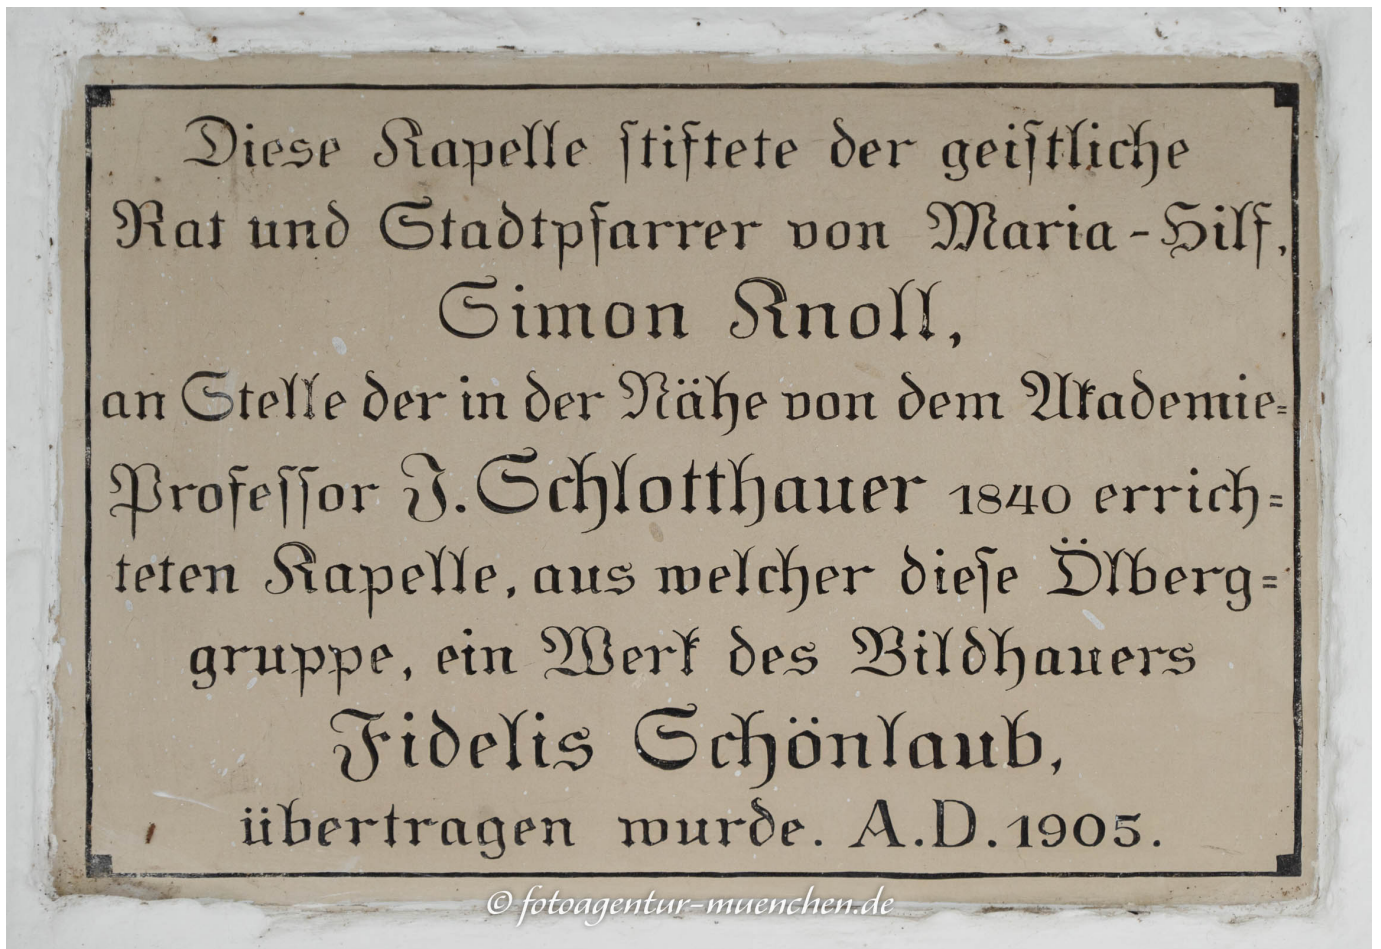 Diese Kapelle ſtiftete der geiſtliche
Rat und Stadtpfarrer von Maria-Hilf,
Simon Knoll,
an Stelle der in der Nähe von dem Akademie=
Profeſſor J. Schlotthauer 1840 errich=
teten Kapelle, aus welcher dieſe Ölberg=
gruppe, ein Werk des Bildhauers
Fidelis Schönlaub,
übertragen wurde. A.D. 1905.
© fotoagentur-muenchen.de